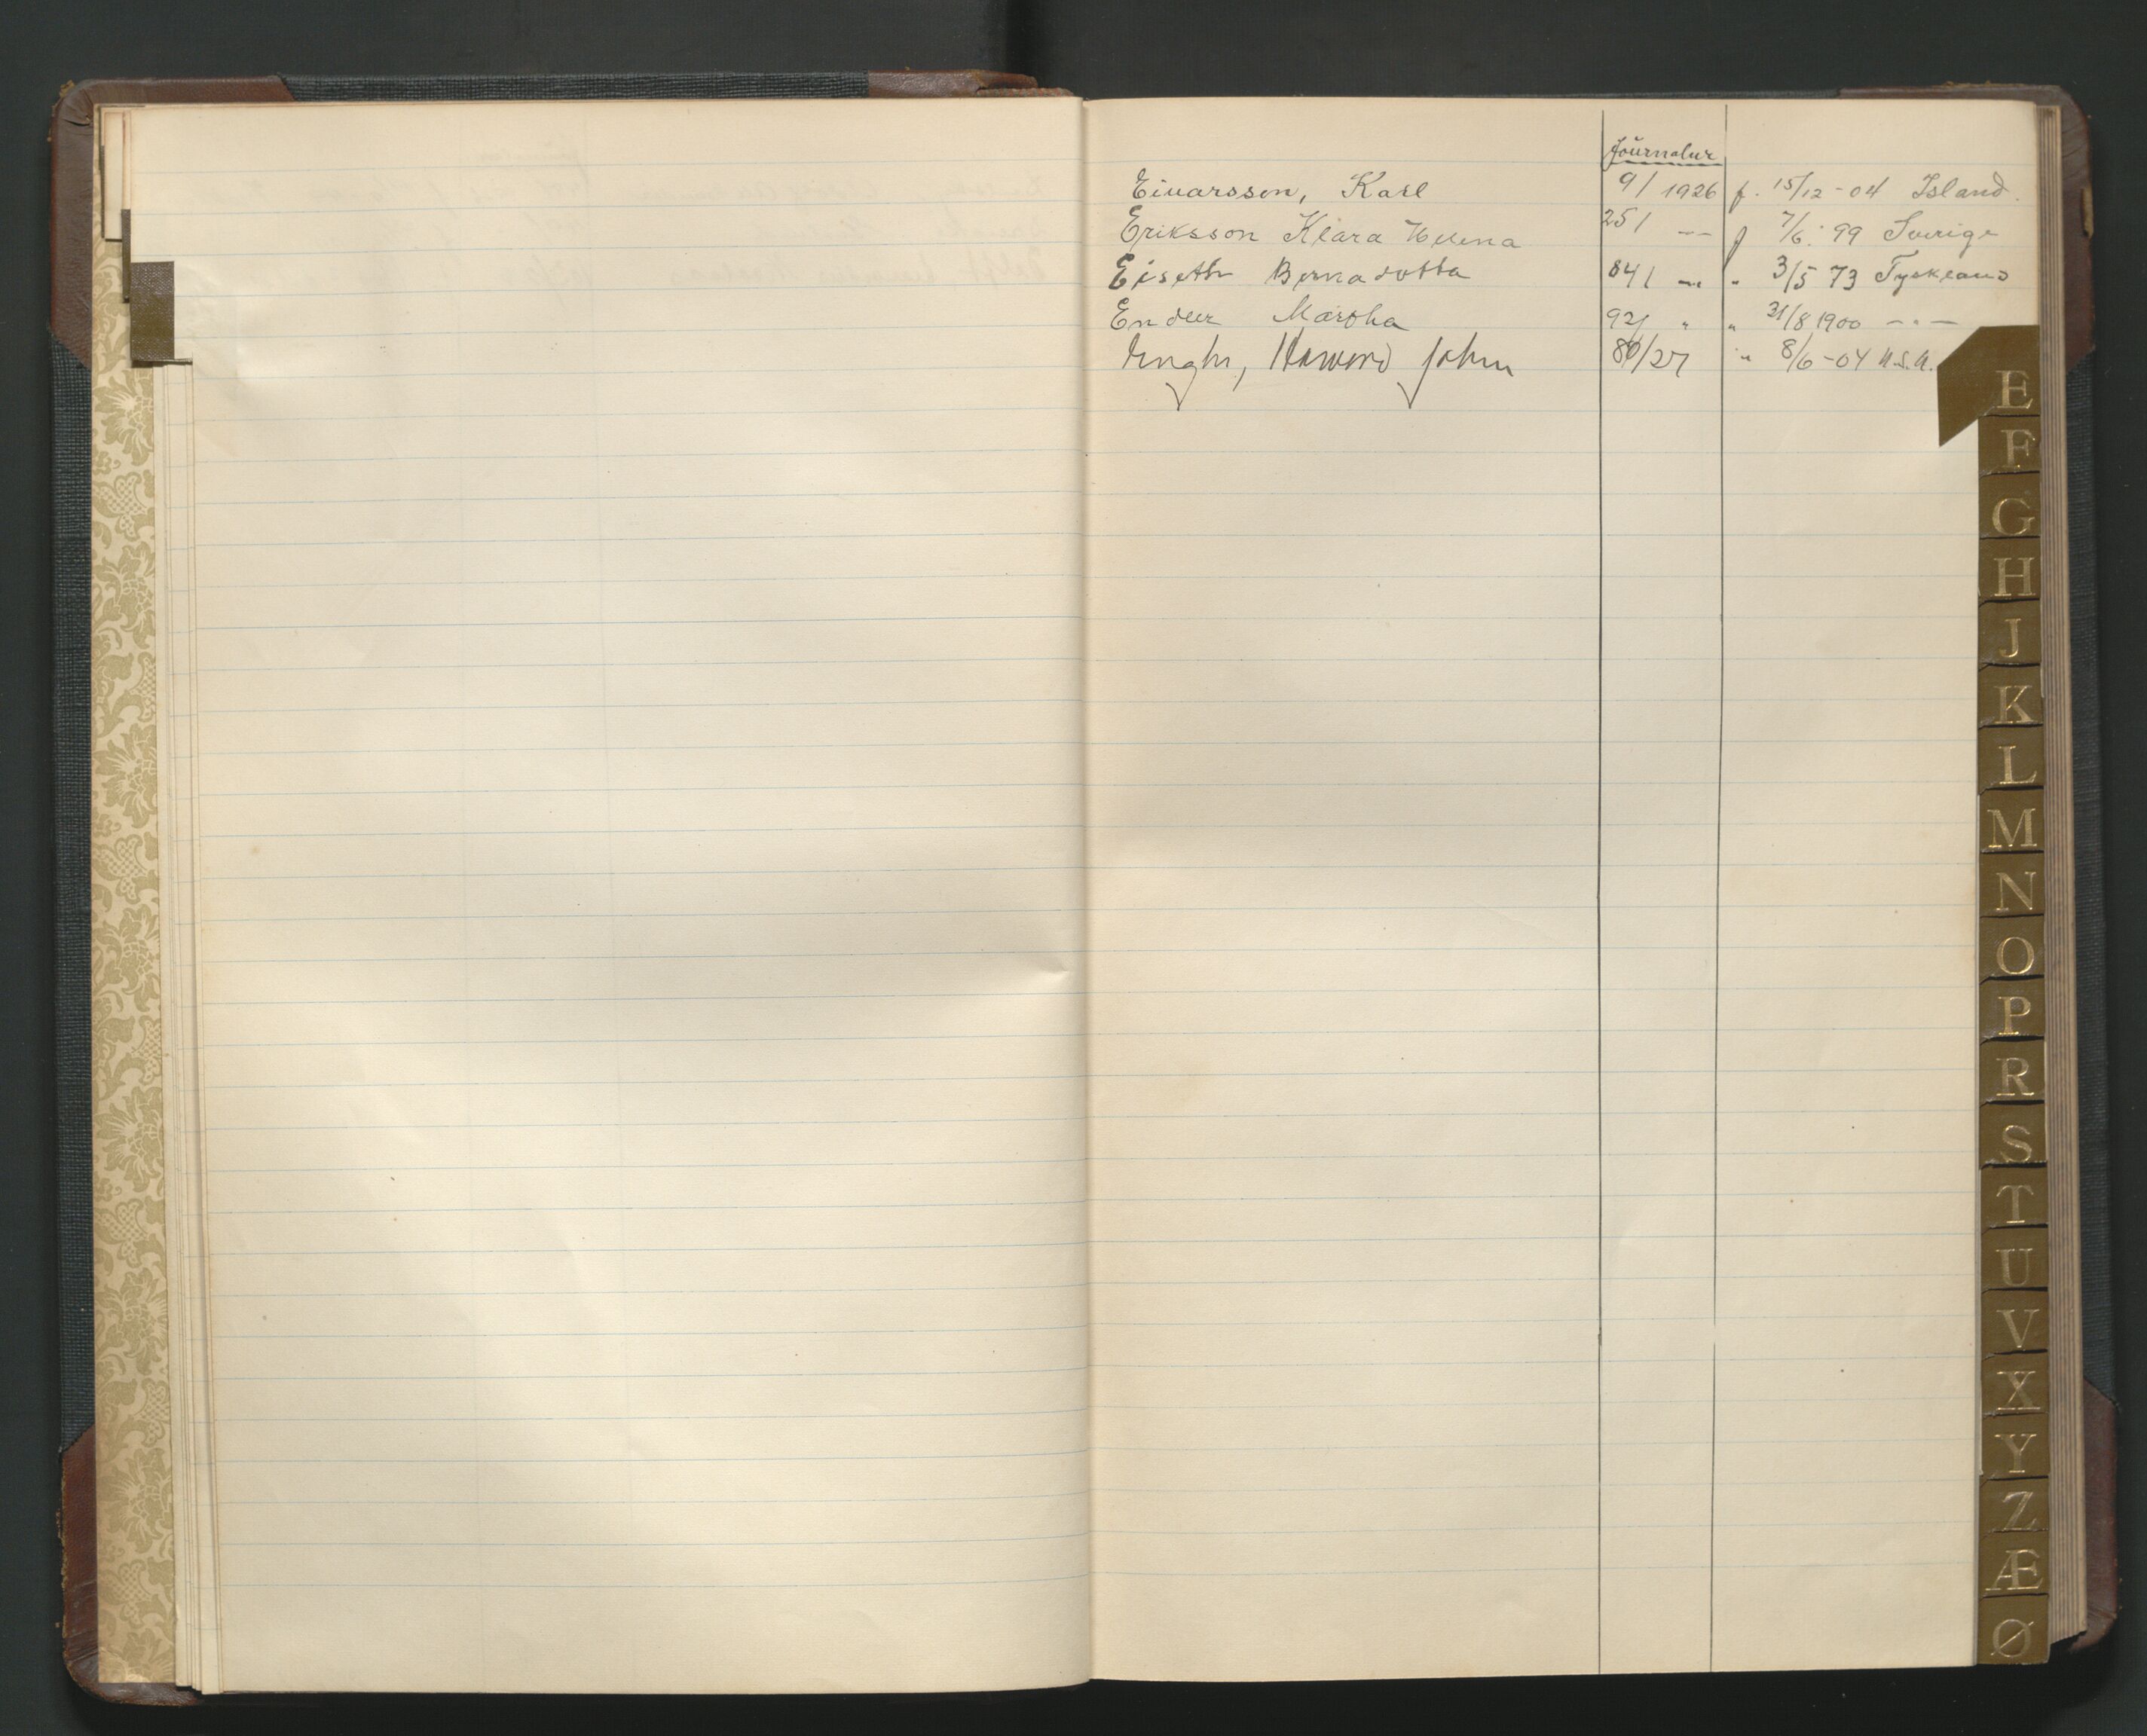 Journalnr
Einarsson, Karl 9/1926 f. 15/12-04 Island.
Eriksson Klara Helena 25/ -"- f 7/6. 99 Sverige
Eiseth Bernadotta 84/ -"- " 3/5 73 Tyskland
Ender Martha 92/ " " 31/8 1900 -"-
Engh, Howard John 80/27 " 8/6-04 U.S.A.
E
F
G
H
J
K
L
M
N
O
P
R
S
T
U
V
X
Y
Z
Æ
Ø